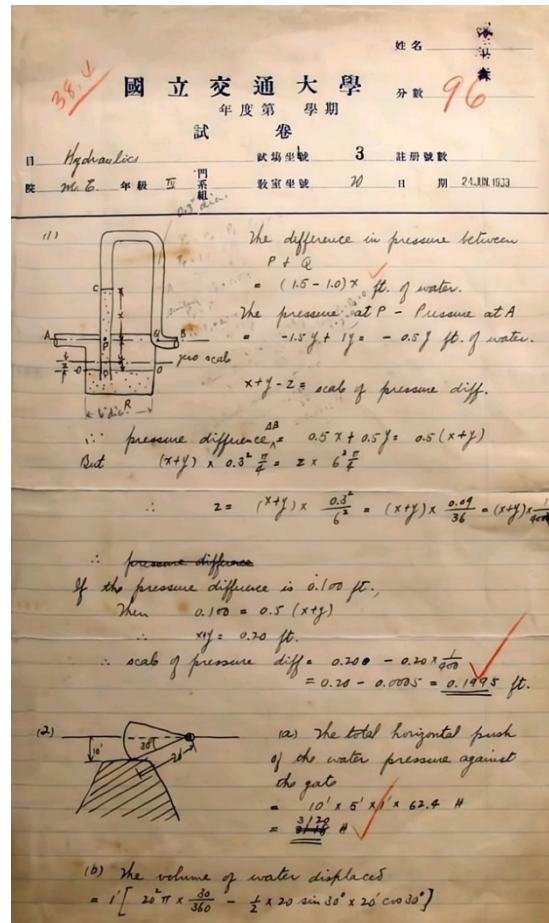 姓名
38.4
國立交通大學
分數 96
年度第 學期
試卷
目 Hydraulics 試場坐號 3 註册號數
院 M.E. 年級 IV 門系組 教室坐號 20 日期 24 JUN. 1933
(1)
0.3" dia.
C
A P Q B
zero scale
O O
R
6" dia.
The difference in pressure between
P + Q
= (1.5 - 1.0) x ft. of water.
The pressure at P - Pressure at A
= -1.5 y + 1y = - 0.5 y ft. of water.
x+y-z = scale of pressure diff.
∴ pressure difference AB = 0.5 x + 0.5 y = 0.5 (x+y)
But (x+y) x 0.3² π/4 = z x 6² π/4
∴ z = (x+y) x 0.3²/6² = (x+y) x 0.09/36 = (x+y) x 1/400
∴ pressure difference
If the pressure difference is 0.100 ft.,
Then 0.100 = 0.5 (x+y)
∴ x+y = 0.20 ft.
∴ scale of pressure diff = 0.200 - 0.20 x 1/400
= 0.20 - 0.0005 = 0.1995 ft.
(2)
10'
30°
20'
(a) The total horizontal push
of the water pressure against
the gate
= 10' x 5' x 1' x 62.4 #
= 3120 #
(b) The volume of water displaced
= 1' [ 20² π x 30/360 - 1/2 x 20 sin 30° x 20' cos 30° ]